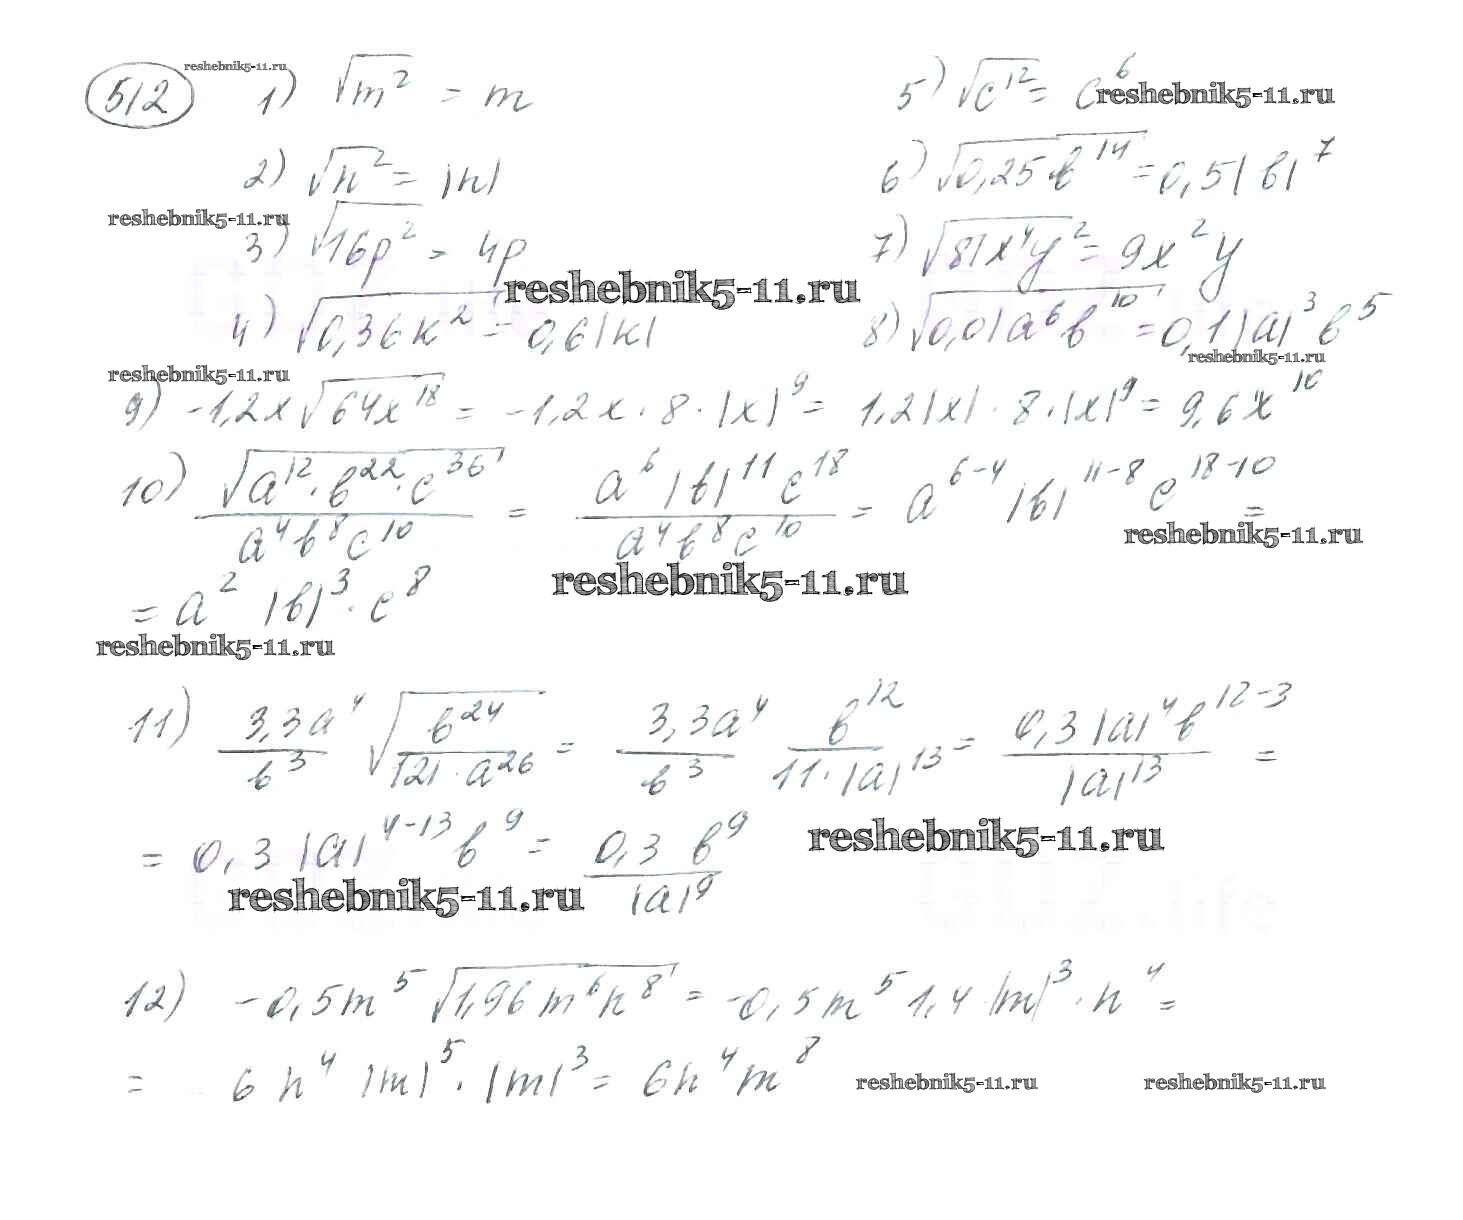 reshebnik5-11.ru
512 1) √m² = m 5) √c¹² = c⁶ reshebnik5-11.ru
2) √n² = |n| 6) √0,25 b¹⁴ = 0,5|b|⁷
reshebnik5-11.ru
3) √16p² = 4p 7) √81x⁴y² = 9x²y
reshebnik5-11.ru
4) √0,36k² = 0,6|k| 8) √0,01a⁶b¹⁰ = 0,1|a|³b⁵
reshebnik5-11.ru reshebnik5-11.ru
9) -1,2x√64x¹⁸ = -1,2x · 8 · |x|⁹ = 1,2|x| · 8 · |x|⁹ = 9,6x¹⁰
10) √a¹² · b²² · c³⁶ / a⁴b⁸c¹⁰ = a⁶|b|¹¹c¹⁸ / a⁴b⁸c¹⁰ = a⁶⁻⁴|b|¹¹⁻⁸c¹⁸⁻¹⁰ =
reshebnik5-11.ru
reshebnik5-11.ru
= a² |b|³ · c⁸
reshebnik5-11.ru
11) 3,3a⁴ / b³ √b²⁴ / 121 · a²⁶ = 3,3a⁴ / b³ b¹² / 11 · |a|¹³ = 0,3|a|⁴b¹²⁻³ / |a|¹³ =
= 0,3|a|⁴⁻¹³b⁹ = 0,3 b⁹ / |a|⁹ reshebnik5-11.ru
reshebnik5-11.ru
12) -0,5m⁵√1,96m⁶n⁸ = -0,5m⁵ 1,4|m|³ · n⁴ =
= 6n⁴ |m|⁵ · |m|³ = 6n⁴m⁸ reshebnik5-11.ru reshebnik5-11.ru